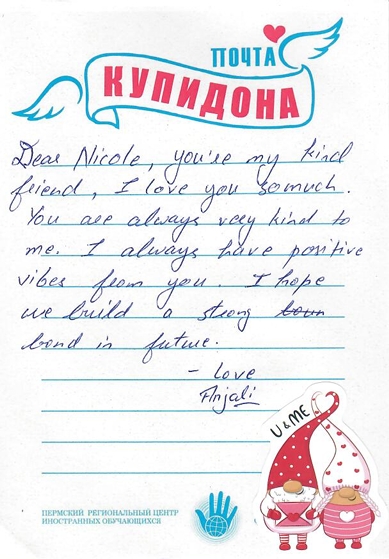 ПОЧТА
КУПИДОНА
Dear Nicole, you're my kind
friend, I love you somuch.
You are always very kind to
me. I always have positive
vibes from you. I hope
we build a strong
bond in future.
- love
Anjali
U & ME
ПЕРМСКИЙ РЕГИОНАЛЬНЫЙ ЦЕНТР
ИНОСТРАННЫХ ОБУЧАЮЩИХСЯ